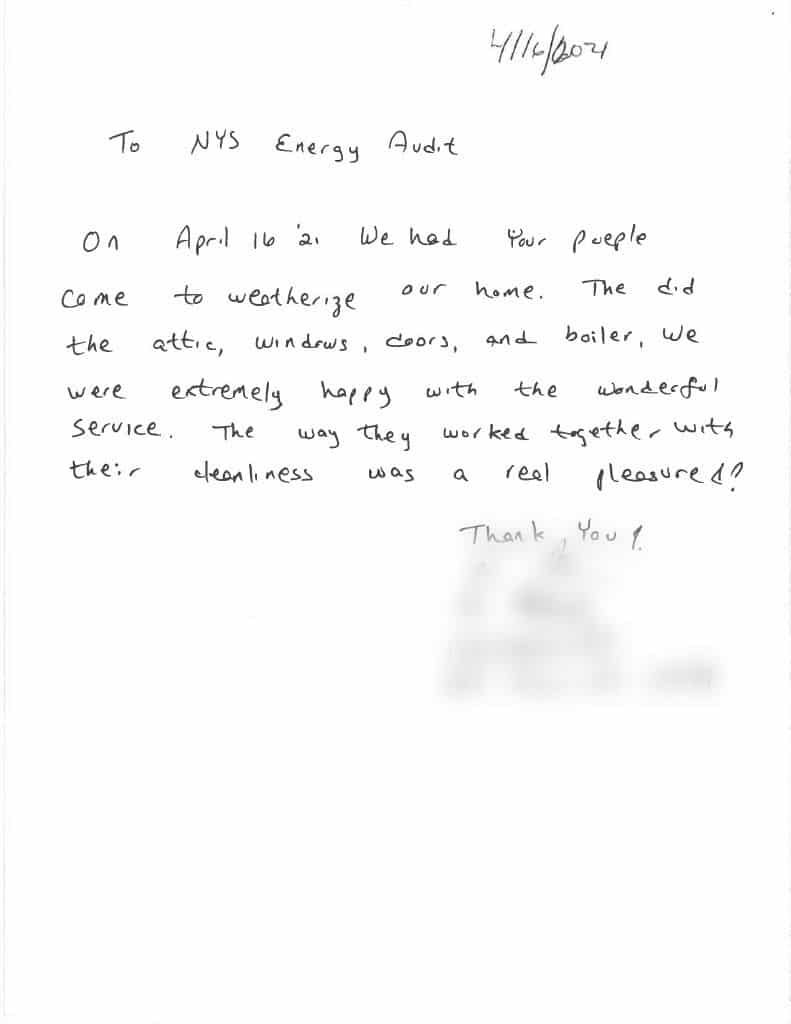 4/16/2021
To NYS Energy Audit
On April 16 '21 We had Your pueple
Come to weatherize our home. The did
the attic, windows, doors, and boiler, We
were extremely happy with the wonderful
Service. The way they worked together with
their cleanliness was a real pleasured?
Thank, You!